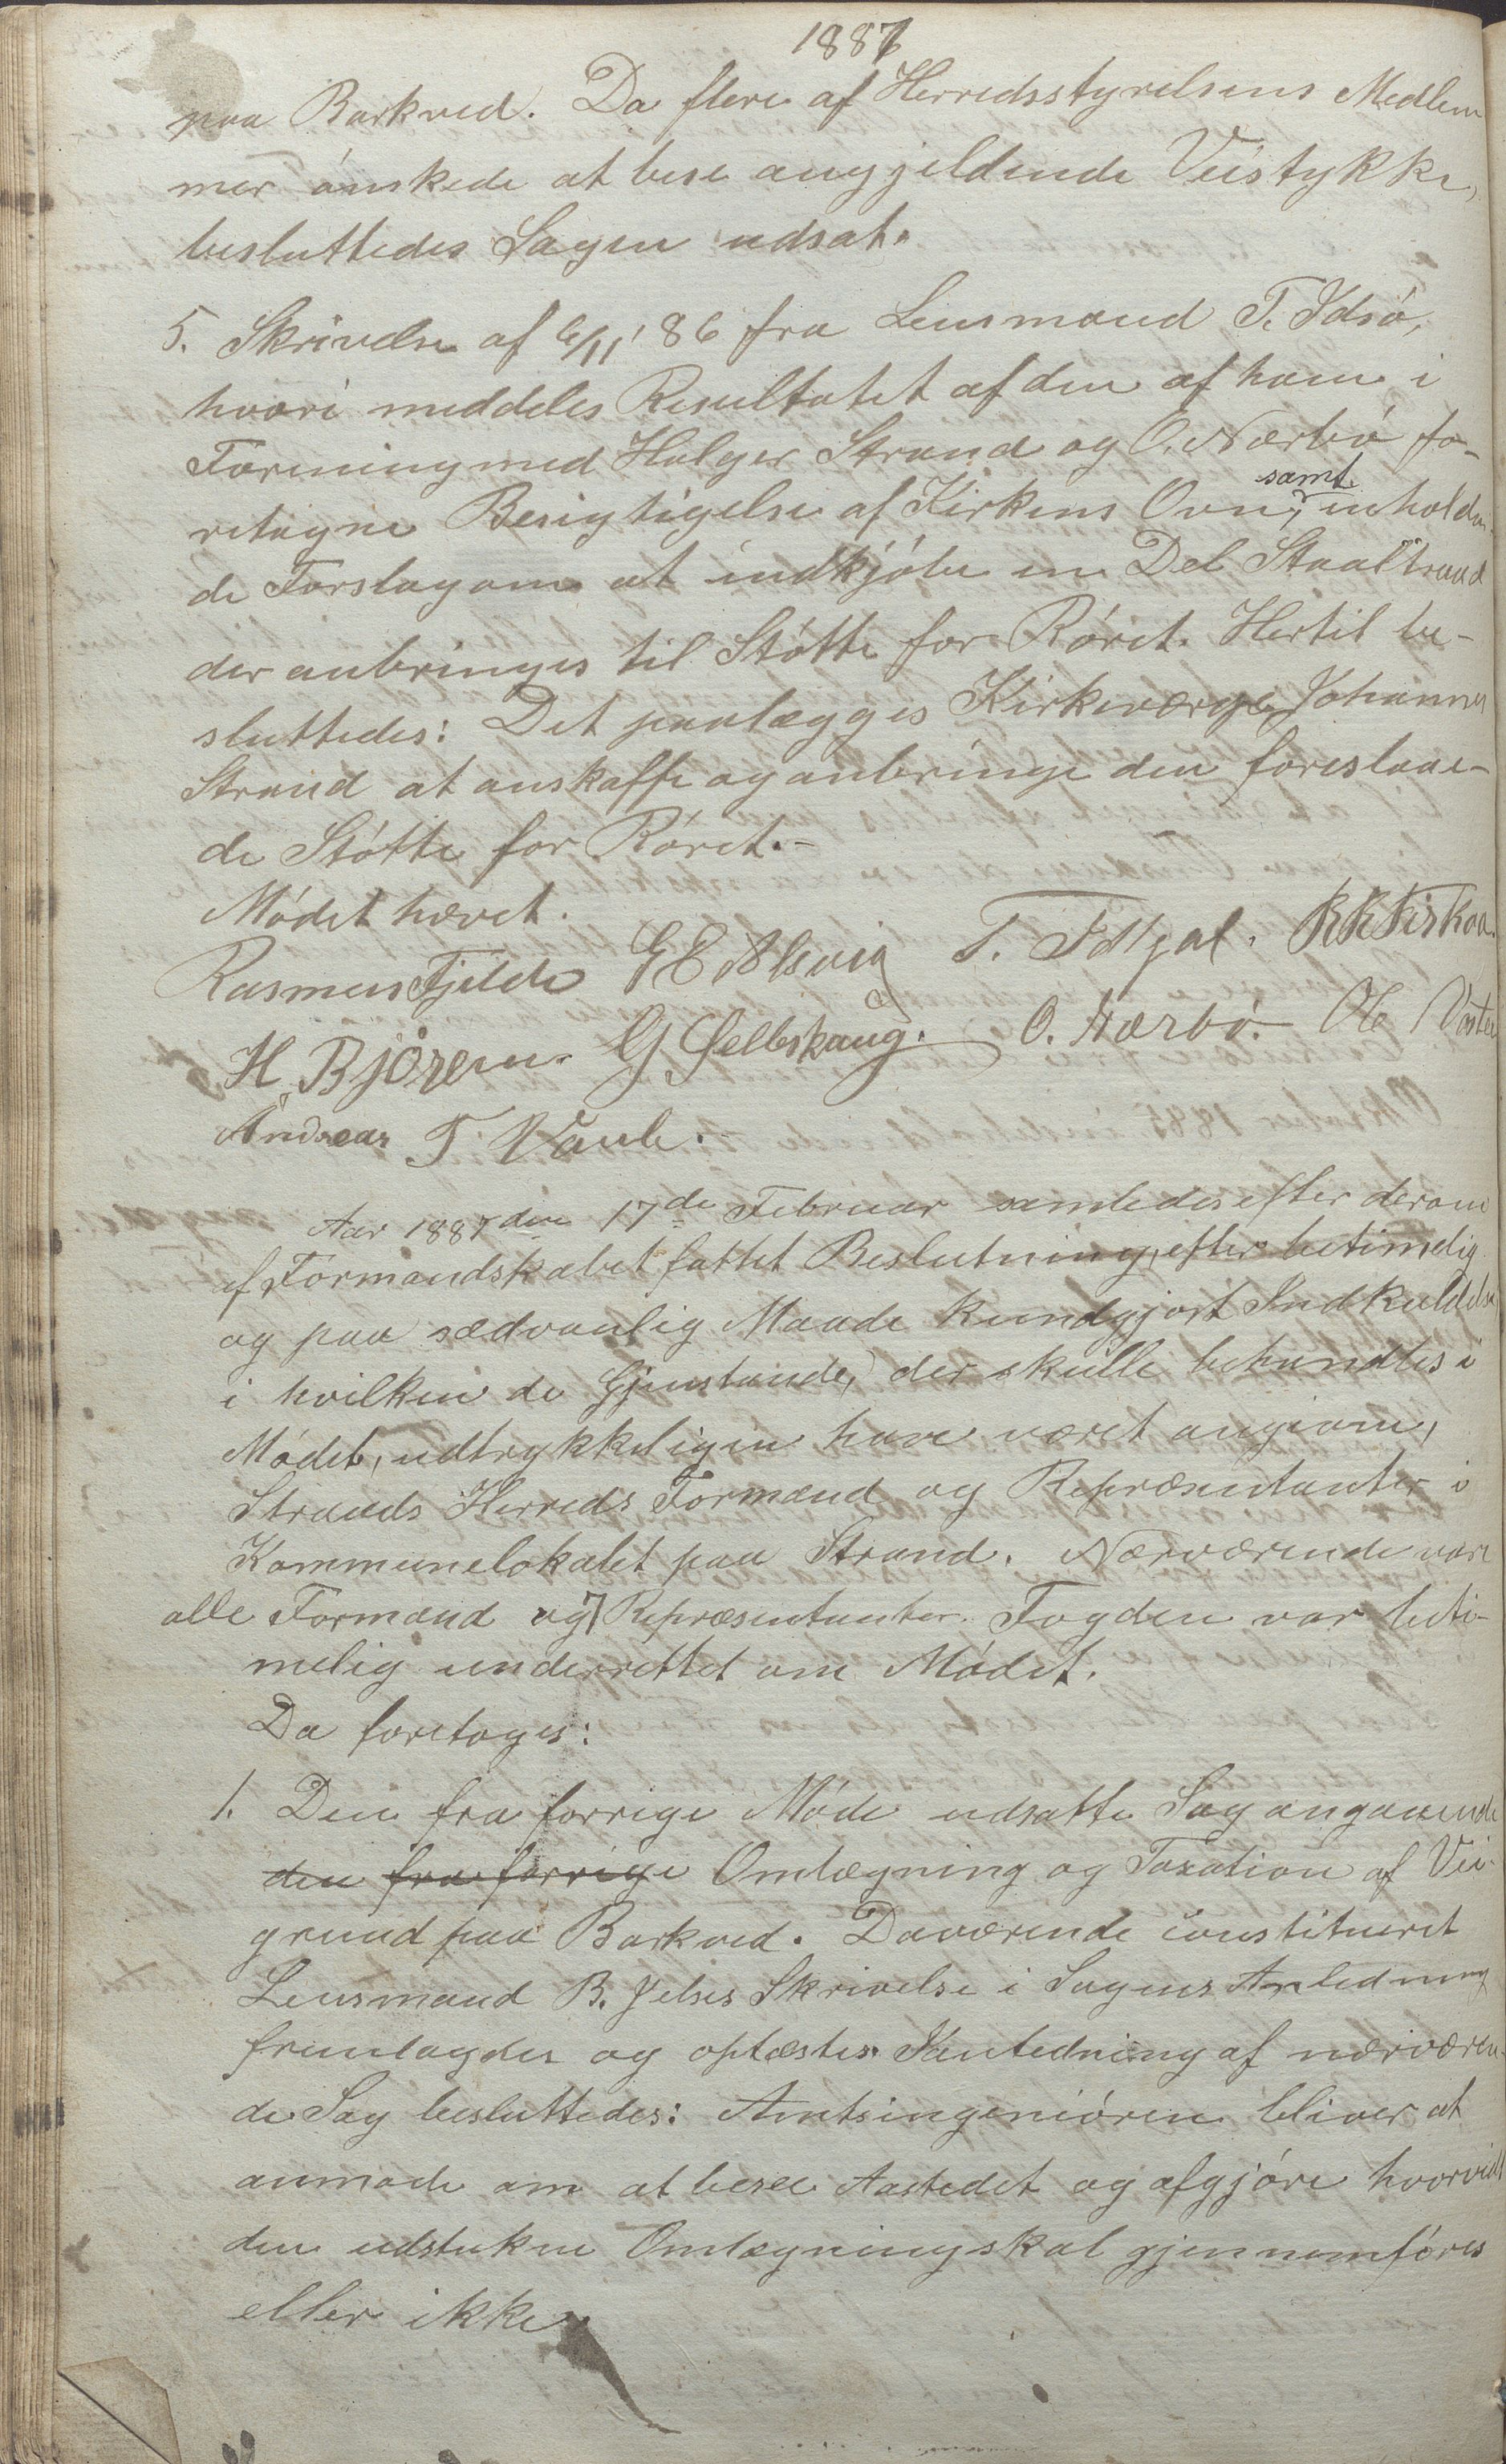 1887
paa Barkved. Da flere af Herredsstyrelsens Medlem
mer ónskede at bese angjeldende Veistykke,
besluttedes Sagen udsat.
5. Skrivelse af 6/11 86 fra Lensmand T. Idsó,
hvori meddeles Resultatet af den af ham i
Forening med Holger Strand og O. Nærbó fo-
retagne Besigtigelse af Kirkens Ovn, samt inholden-
de Forslag om at indkjóbe en Del Staaltraad
der anbringes til Stótte for Róret. Hertil be-
sluttedes: Det paalægges Kirkeværge Johannes
Strand at anskaffe og anbringe den foreslaae-
de Stótte for Róret.-
Módet hævet.
Rasmus Fjelde G E Alsvig T. Fidtjal. R K Fiskaa.
H. Björem. G Selleskaug. O. Nærbó. Ole
Andreas T Vaule.
Aar 1887 den 17de Februar samledes efter derom
af Formandskabet fattet Beslutning, efter betimelig
og paa sædvanlig Maade kundgjort Indkaldelse
i hvilken de Gjenstande, der skulle behandles i
Módet, udtrykkeligen have været angivne,
Strands Herreds Formænd og Repræsentanter i
Kommunelokalet paa Strand. Nærværende vare
alle Formænd og 7 Repræsentanter. Fogden var beti-
melig underrettet om Módet.
Da foretoges:
1. Den fra forrige Móde udsatte Sag angaaende
den fra forrige Omlægning og Taxation af Vei-
grund paa Barkved. Daværende constitueret
Lensmand B. Jelses Skrivelse i Sagens Anledning
fremlagdes og oplæstes. I Anledning af nærværen-
de Sag besluttedes: Amtsingenióren bliver at
anmode om at besee Aastedet og afgjóre hvorvidt
den udstukne Omlægning skal gjennemfóres
eller ikke.